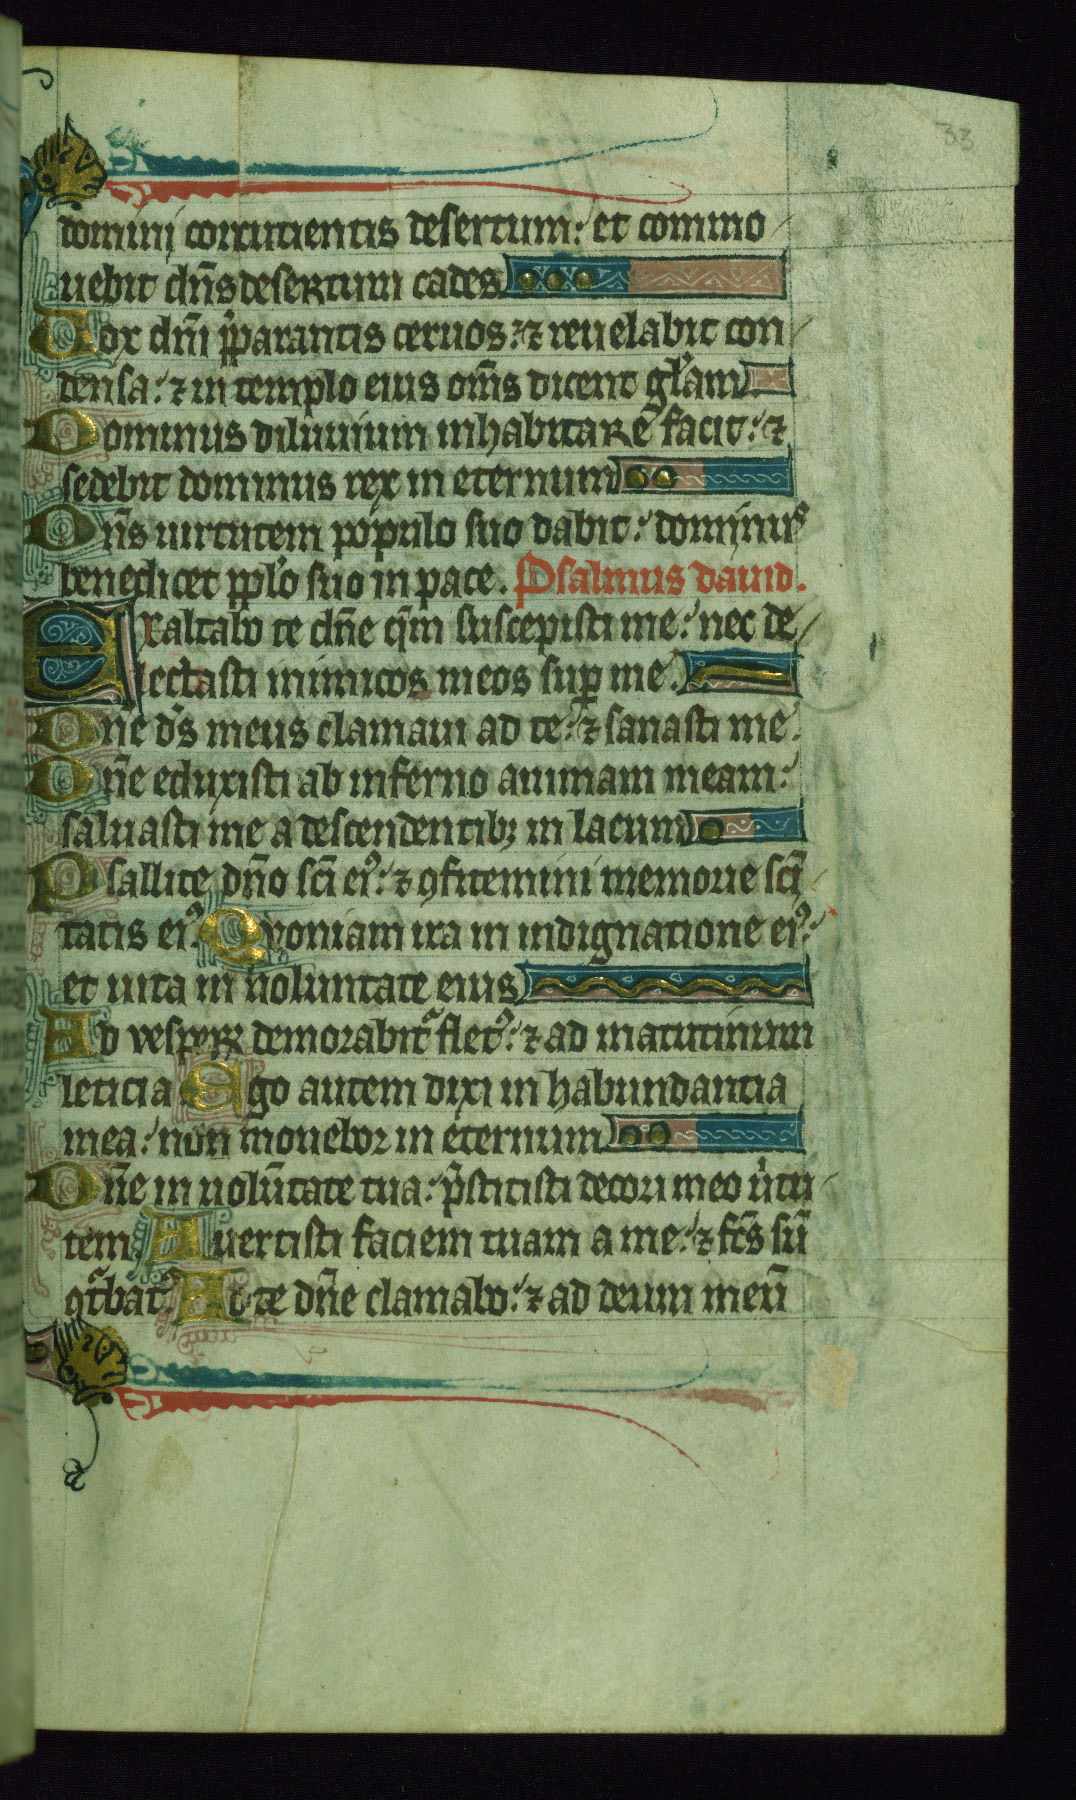 33
domini concutientis desertum: et commo
uebit dñs desertum cades
Uox dñi p̃parantis ceruos: ⁊ reuelabit con
densa: ⁊ in templo eius om̃s dicent gl̃am
Dominus diluuium inhabitare facit: ⁊
sedebit dominus rex in eternum
Dñs uirtutem populo suo dabit: dominus
benedicet ppl̃o suo in pace. Psalmus dauid.
Exaltabo te dñe qm̃ suscepisti me: nec de
lectasti inimicos meos sup me.
Dñe ds̃ meus clamaui ad te: ⁊ sanasti me.
Dñe eduxisti ab inferno animam meam:
saluasti me a descendentibꝫ in lacum
Psallite dño sc̃i eiꝰ: ⁊ ꝯfitemini memorie sc̃i
tatis eiꝰ. Quoniam ira in indignatione eiꝰ:
et uita in uoluntate eius
Ad vesperꝝ demorabit᷑ fletꝰ: ⁊ ad matutinum
leticia. Ego autem dixi in habundantia
mea: non mouebor in eternum
Dñe in uolũtate tua: p̃stitisti decori meo uirtu
tem. Auertisti faciem tuam a me: ⁊ fc̃s sũ
ꝯt᷑bat᷒ Ad te dñe clamabo: ⁊ ad deum meũ